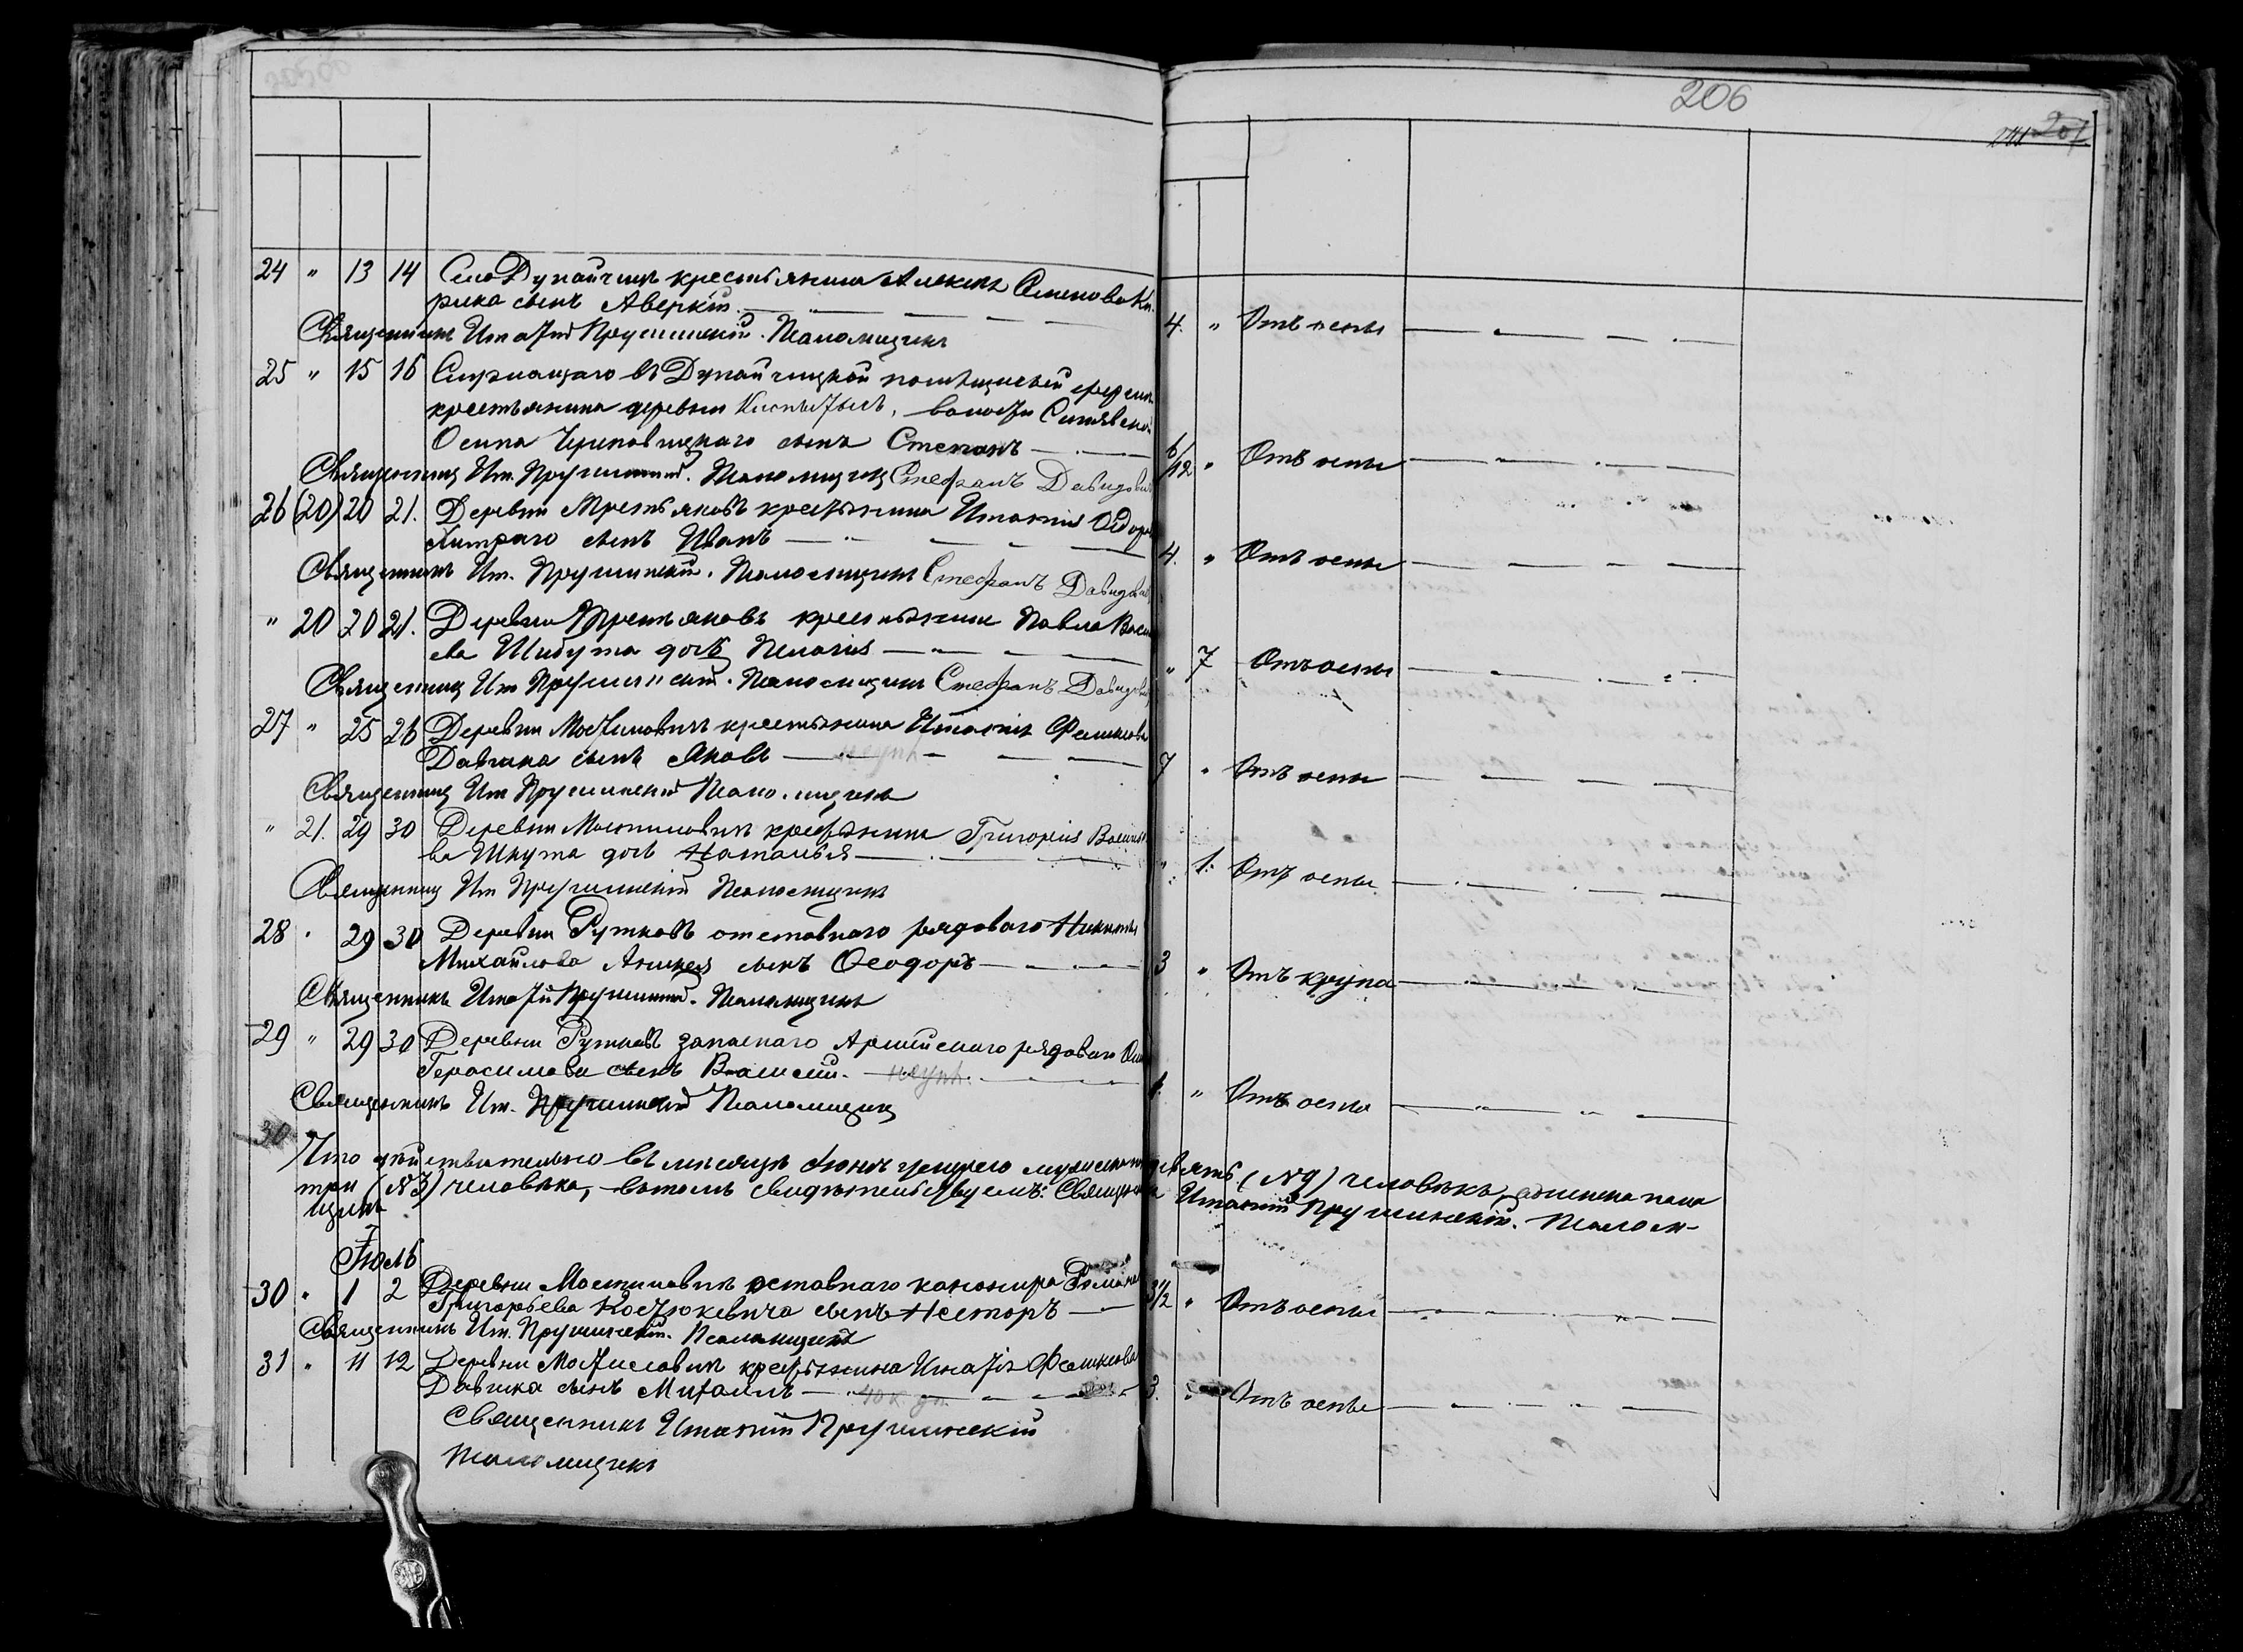 206
201
24 " 13 14 Село Дунайчицъ крестьянина Алексѣя Семенова Ки-
рика сынъ Аверкій. 4. " Отъ оспы
Священникъ Игнатій Прушинскій. Псаломщикъ
25 " 15 16 Служащаго въ Дунайчицкой помѣщичьей
крестьянина деревни волости Синявской
Осипа сынъ Степанъ 6/12 " Отъ оспы
Священникъ Иг. Прушинскій. Псаломщикъ Стефанъ Давидовичъ
26 (20) 20 21. Деревни Третьяковъ крестьянина Игнатія Ѳедоро
Хитраго сынъ Иванъ 4. " Отъ оспы
Священникъ Иг. Прушинскій. Псаломщикъ Стефанъ Давидовичъ
" 20 20 21. Деревни Третьяковъ крестьянина Павла Васи
ева Шибута дочь Пелагія " 7 Отъ оспы
Священникъ Иг. Прушинскій. Псаломщикъ Стефанъ Давидовичъ
27 " 25 26 Деревни Мостиловичъ крестьянина Игнатія
сынъ Яковъ 7 " Отъ оспы
Священникъ Иг. Прушинскій Псаломщикъ
" 21. 29 30 Деревни Мостиловичъ крестьянина Григорія Василье
ва Шкута дочь Наталья " 1. Отъ оспы
Священникъ Иг Прушинскій Псаломщикъ
28 " 29 30 Деревни Рутковъ отставнаго рядоваго Никиты
Михайлова сынъ Ѳеодоръ 3 " Отъ крупа
Священникъ Игнатій Прушинскій. Псаломщикъ
29 " 29 30 Деревни Рутковъ запаснаго Армійскаго рядоваго
Герасимова сынъ Василій. " Отъ оспы
Священникъ Иг. Прушинскій Псаломщикъ
30
Что дѣйствительно въ мѣсяцѣ Іюнѣ умерло мужеска пола девять (№9) человѣкъ, а женска пола
три (№3) человѣка, въ томъ свидѣтельствуемъ: Священникъ Игнатій Прушинскій. Псалом-
щикъ
Іюль
30 " 1 2 Деревни Мостиловичъ отставнаго канонира Романа
Григорьева Костюкевича сынъ Несторъ 3 1/2 " Отъ оспы
Священникъ Иг. Прушинскій. Псаломщикъ
31 " 11 12 Деревни Мостиловичъ крестьянина Игнатія
сынъ Михаилъ 3. " Отъ оспы
Священникъ Игнатій Прушинскій
Псаломщикъ